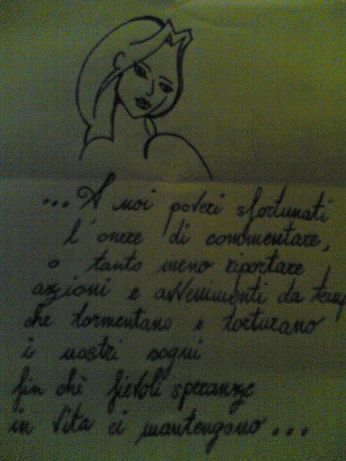 ... A noi poveri sfortunati
l'onere di commentare,
o tanto meno riportare
azioni e avvenimenti da
che tormentano e torturano
i nostri sogni
fin chè fievoli speranze
in vita ci mantengono ...